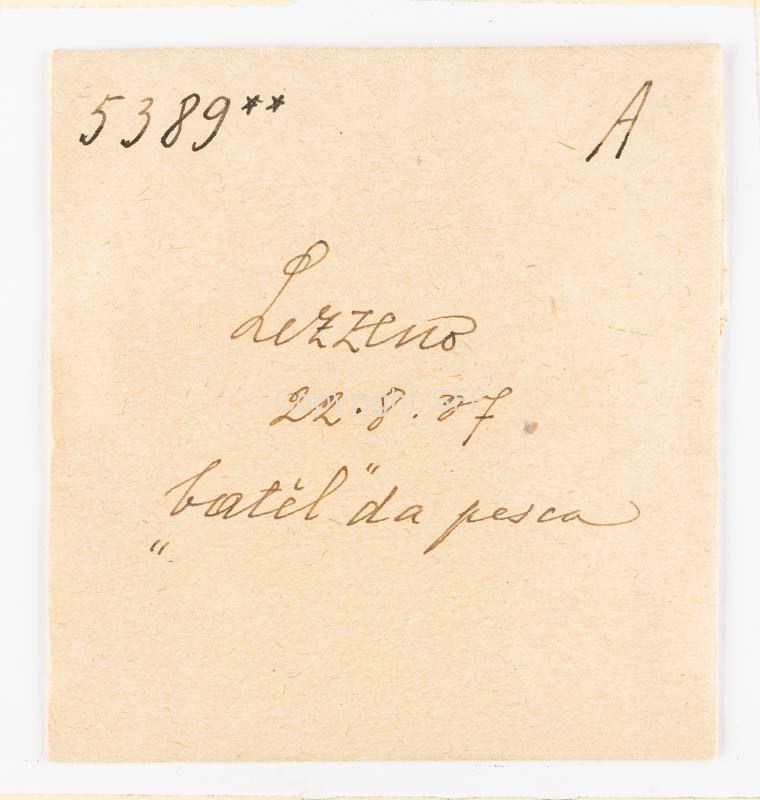 5389** A
Lezzeno
22.8.37
„batèl" da pesca